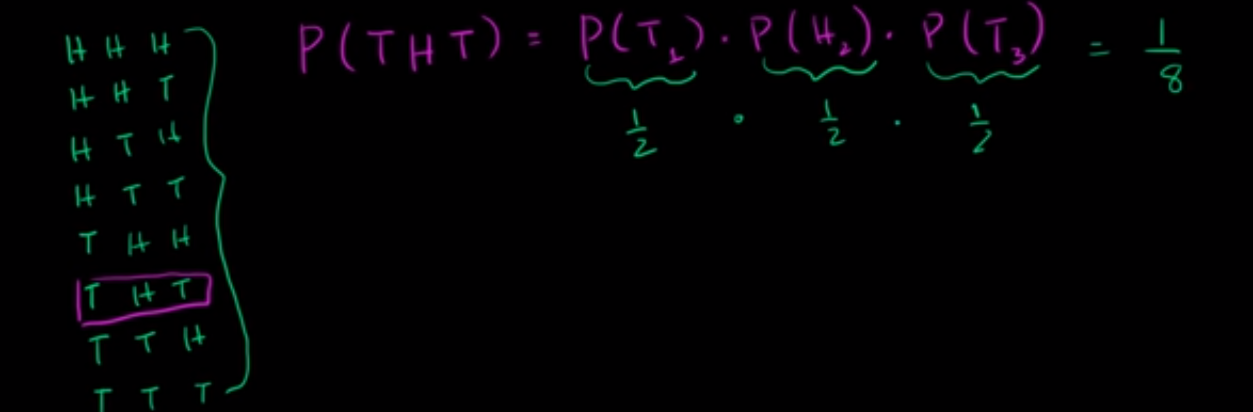 H H H
H H T
H T H
H T T
T H H
T H T
T T H
T T T
P(THT) = P(T₁) · P(H₂) · P(T₃) = 1/8
1/2 · 1/2 · 1/2